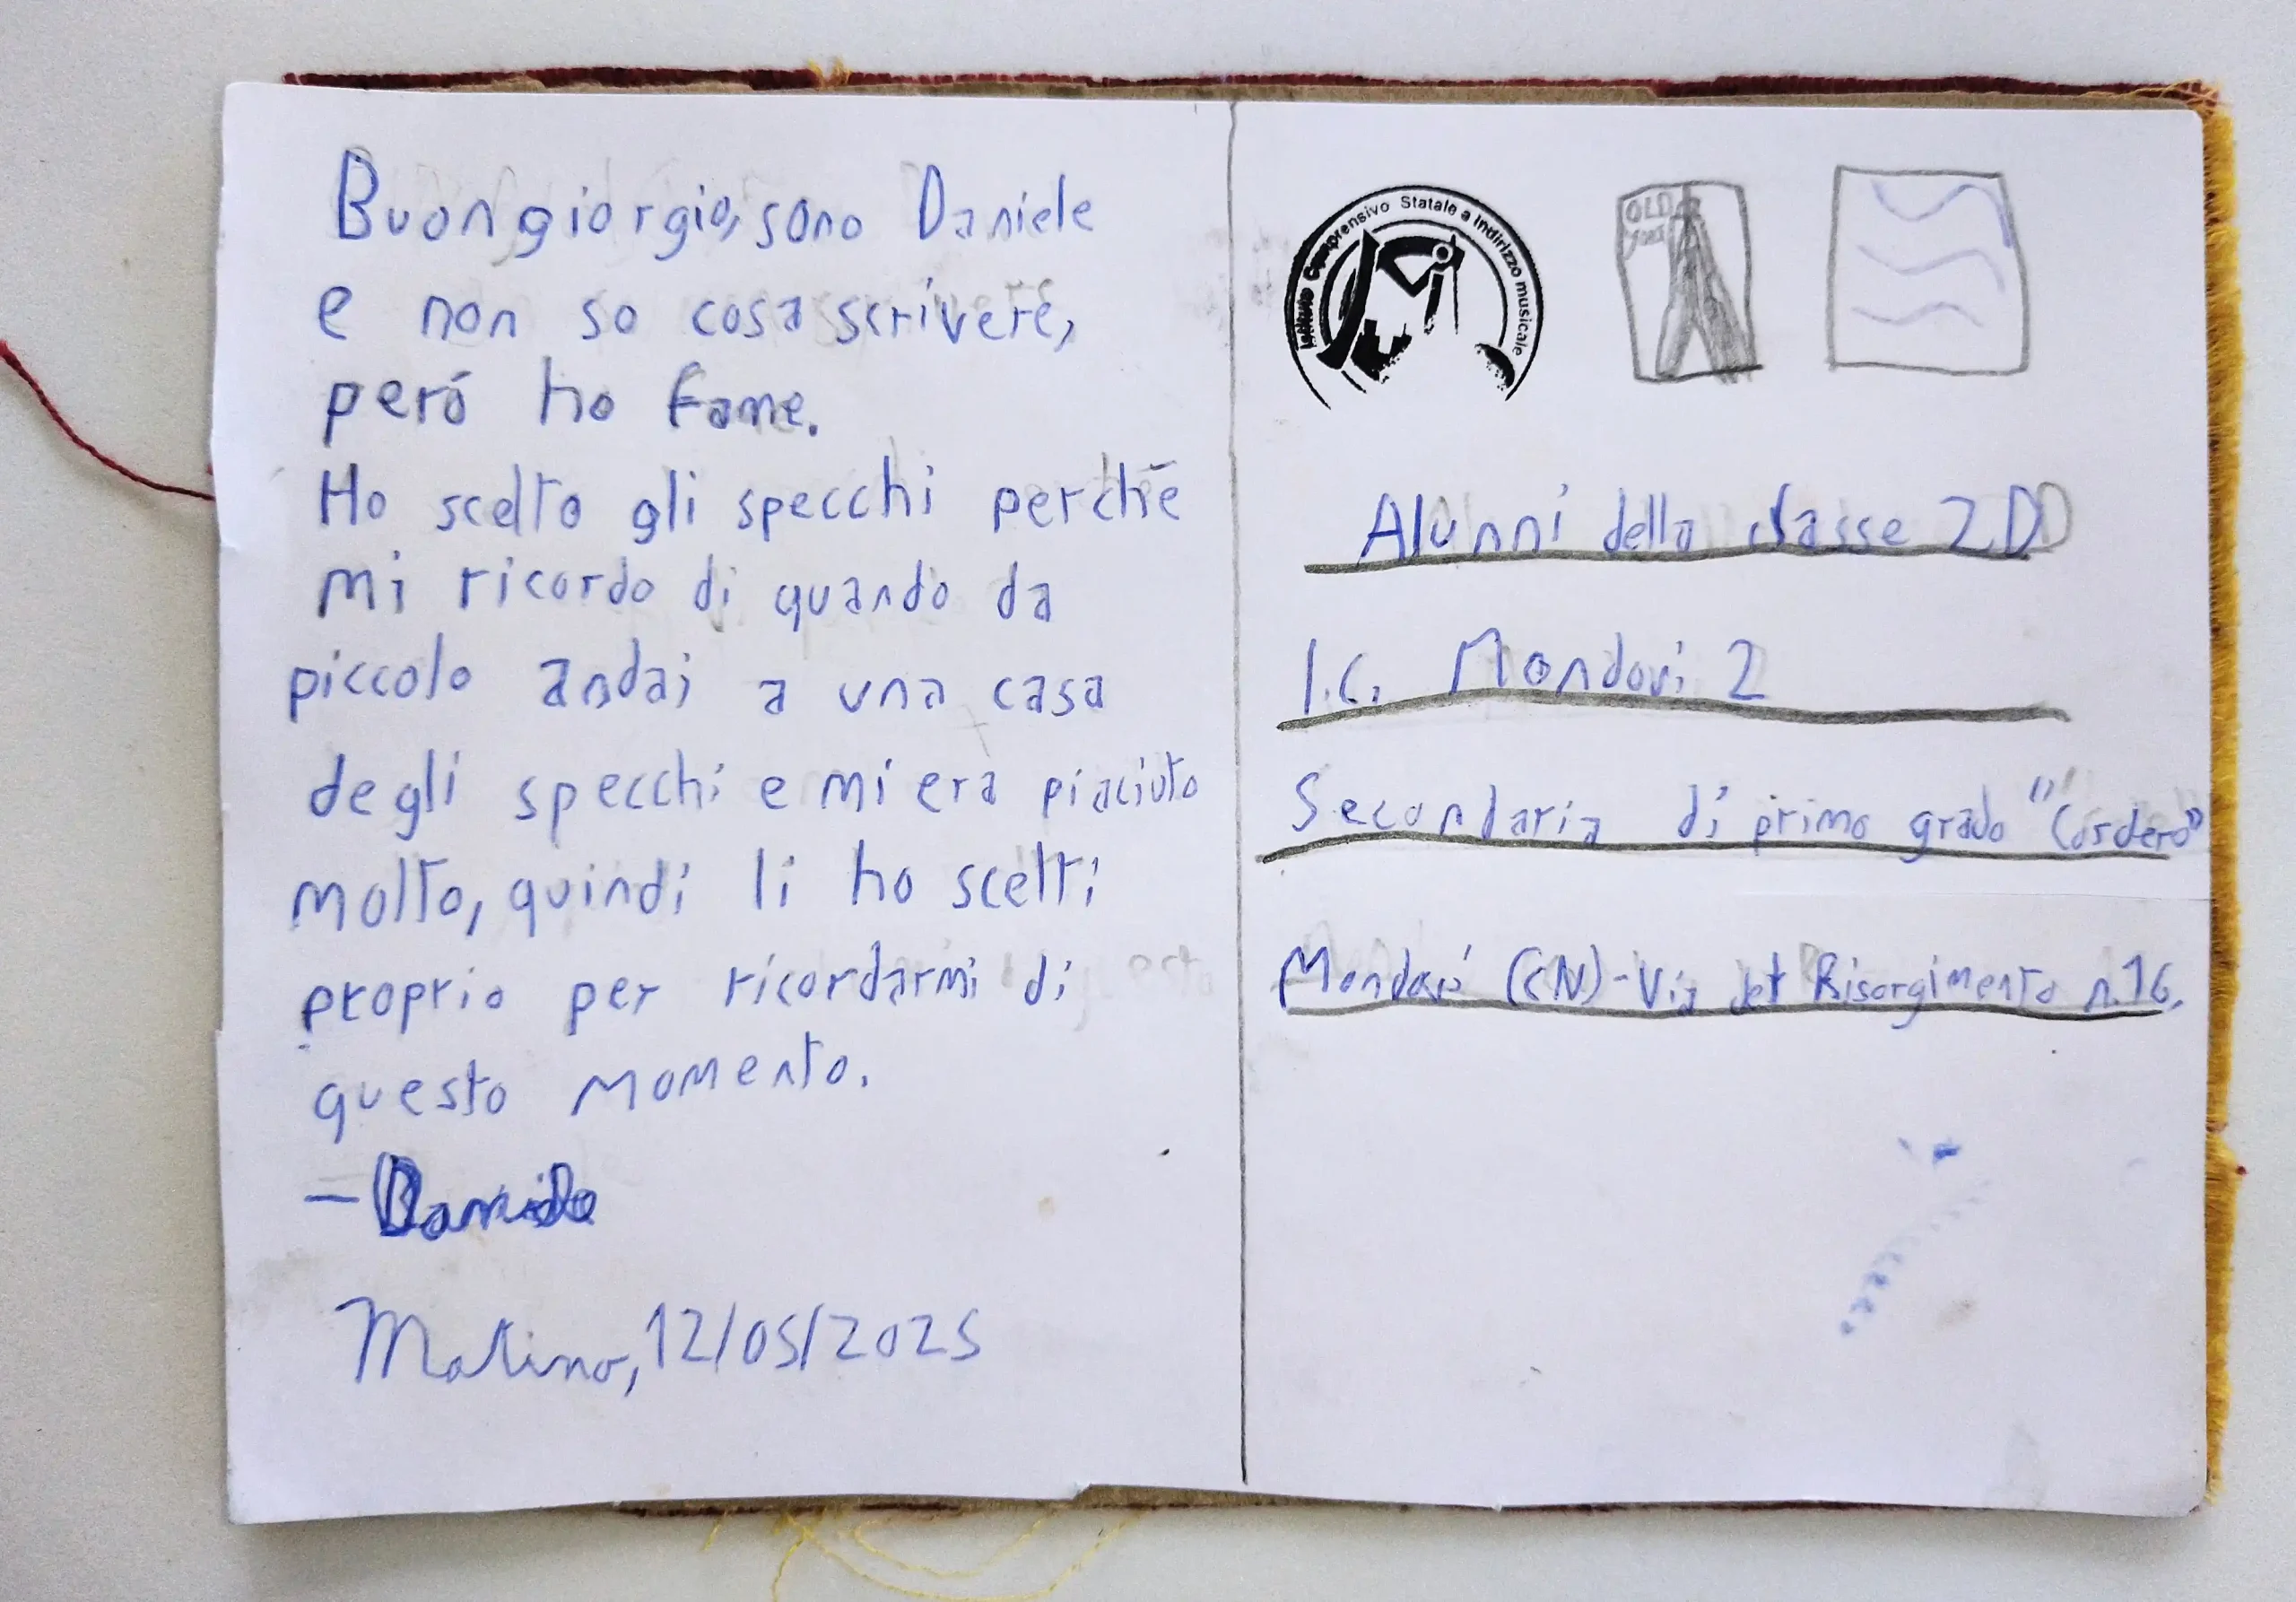 Buongiorgio, sono Daniele
e non so cosa scrivere,
peró ho fame.
Ho scelto gli specchi perchē
mi ricordo di quando da
piccolo andai a una casa
degli specchi e mi era piaciuto
molto, quindi li ho scelti
proprio per ricordarmi di
questo momento.
- Daniele
Matino, 12/05/2025
Istituto Comprensivo Statale a Indirizzo musicale
OLD
Alunni della classe 2D
I.C. Mondovi 2
Secondaria di primo grado "Cordero"
Mondovi (CN)-Via del Risorgimento n.16.